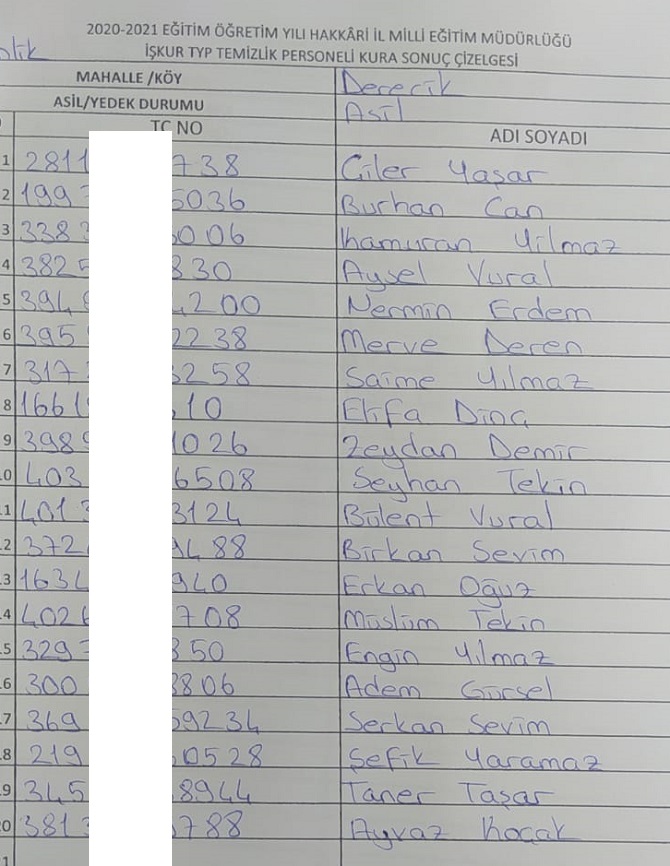 2020-2021 EĞİTİM ÖĞRETİM YILI HAKKÂRİ İL MİLLİ EĞİTİM MÜDÜRLÜĞÜ
İŞKUR TYP TEMİZLİK PERSONELİ KURA SONUÇ ÇİZELGESİ
MAHALLE /KÖY Derecik
ASİL/YEDEK DURUMU Asil
TC NO ADI SOYADI
1 2811 738 Ciler Yaşar
2 199 5036 Burhan Can
3 338 006 Kamuran Yilmaz
4 382 830 Aysel Vural
5 394 200 Nermin Erdem
6 395 2238 Merve Deren
7 317 3258 Saime Yılmaz
8 1661 10 Elifa Dinç
9 398 1026 Zeydan Demir
0 403 6508 Seyhan Tekin
1 401 3124 Bülent Vural
2 372 488 Birkan Sevim
3 163 940 Erkan Oğuz
4 402 708 Müslüm Tekin
5 329 350 Engin Yılmaz
6 300 3806 Adem Gürsel
7 369 59234 Serkan Sevim
8 219 0528 Şefik Yaramaz
9 345 8944 Taner Taşar
0 381 788 Ayvaz Koçak
1